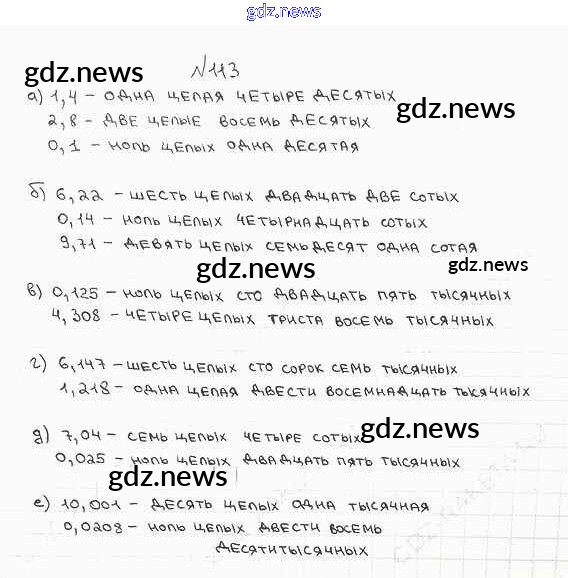 gdz.news
№113
gdz.news
а) 1,4 – ОДНА ЦЕЛАЯ ЧЕТЫРЕ ДЕСЯТЫХ
gdz.news
2,8 – ДВЕ ЦЕЛЫЕ ВОСЕМЬ ДЕСЯТЫХ
0,1 – НОЛЬ ЦЕЛЫХ ОДНА ДЕСЯТАЯ
б) 6,22 – ШЕСТЬ ЦЕЛЫХ ДВАДЦАТЬ ДВЕ СОТЫХ
0,14 – НОЛЬ ЦЕЛЫХ ЧЕТЫРНАДЦАТЬ СОТЫХ
9,71 – ДЕВЯТЬ ЦЕЛЫХ СЕМЬДЕСЯТ ОДНА СОТАЯ
gdz.news
gdz.news
в) 0,125 – НОЛЬ ЦЕЛЫХ СТО ДВАДЦАТЬ ПЯТЬ ТЫСЯЧНЫХ
4,308 – ЧЕТЫРЕ ЦЕЛЫХ ТРИСТА ВОСЕМЬ ТЫСЯЧНЫХ
г) 6,147 – ШЕСТЬ ЦЕЛЫХ СТО СОРОК СЕМЬ ТЫСЯЧНЫХ
1,218 – ОДНА ЦЕЛАЯ ДВЕСТИ ВОСЕМНАДЦАТЬ ТЫСЯЧНЫХ
gdz.news
д) 7,04 – СЕМЬ ЦЕЛЫХ ЧЕТЫРЕ СОТЫХ
0,025 – НОЛЬ ЦЕЛЫХ ДВАДЦАТЬ ПЯТЬ ТЫСЯЧНЫХ
gdz.news
е) 10,001 – ДЕСЯТЬ ЦЕЛЫХ ОДНА ТЫСЯЧНАЯ
0,0208 – НОЛЬ ЦЕЛЫХ ДВЕСТИ ВОСЕМЬ
ДЕСЯТИТЫСЯЧНЫХ